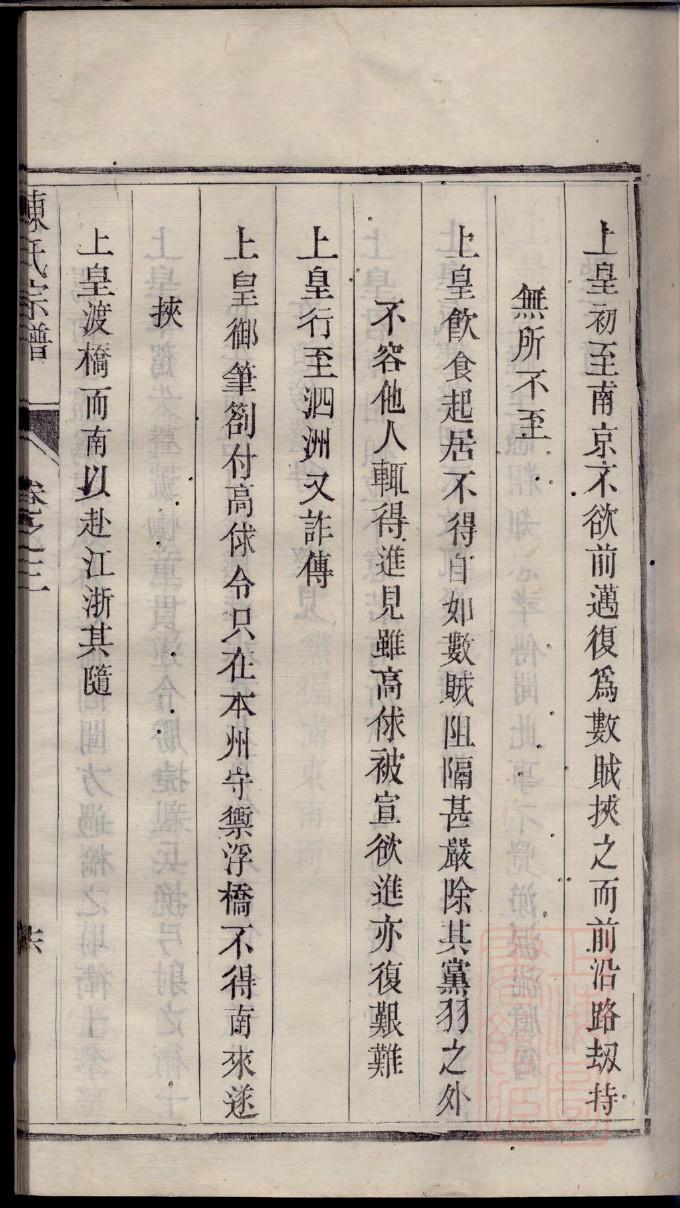 上皇初至南京不欲前邁復爲數賊挾之而前沿路刼持
無所不至
上皇飲食起居不得自如數賊阻隔甚嚴除其黨羽之外
不容他人輒得進見雖高俅被宣欲進亦復艱難
上皇行至泗洲又詐傳
上皇御筆劄付高俅令只在本州守禦浮橋不得南來遂
挾
上皇渡橋而南以赴江浙其隨
陳氏宗譜
卷之三